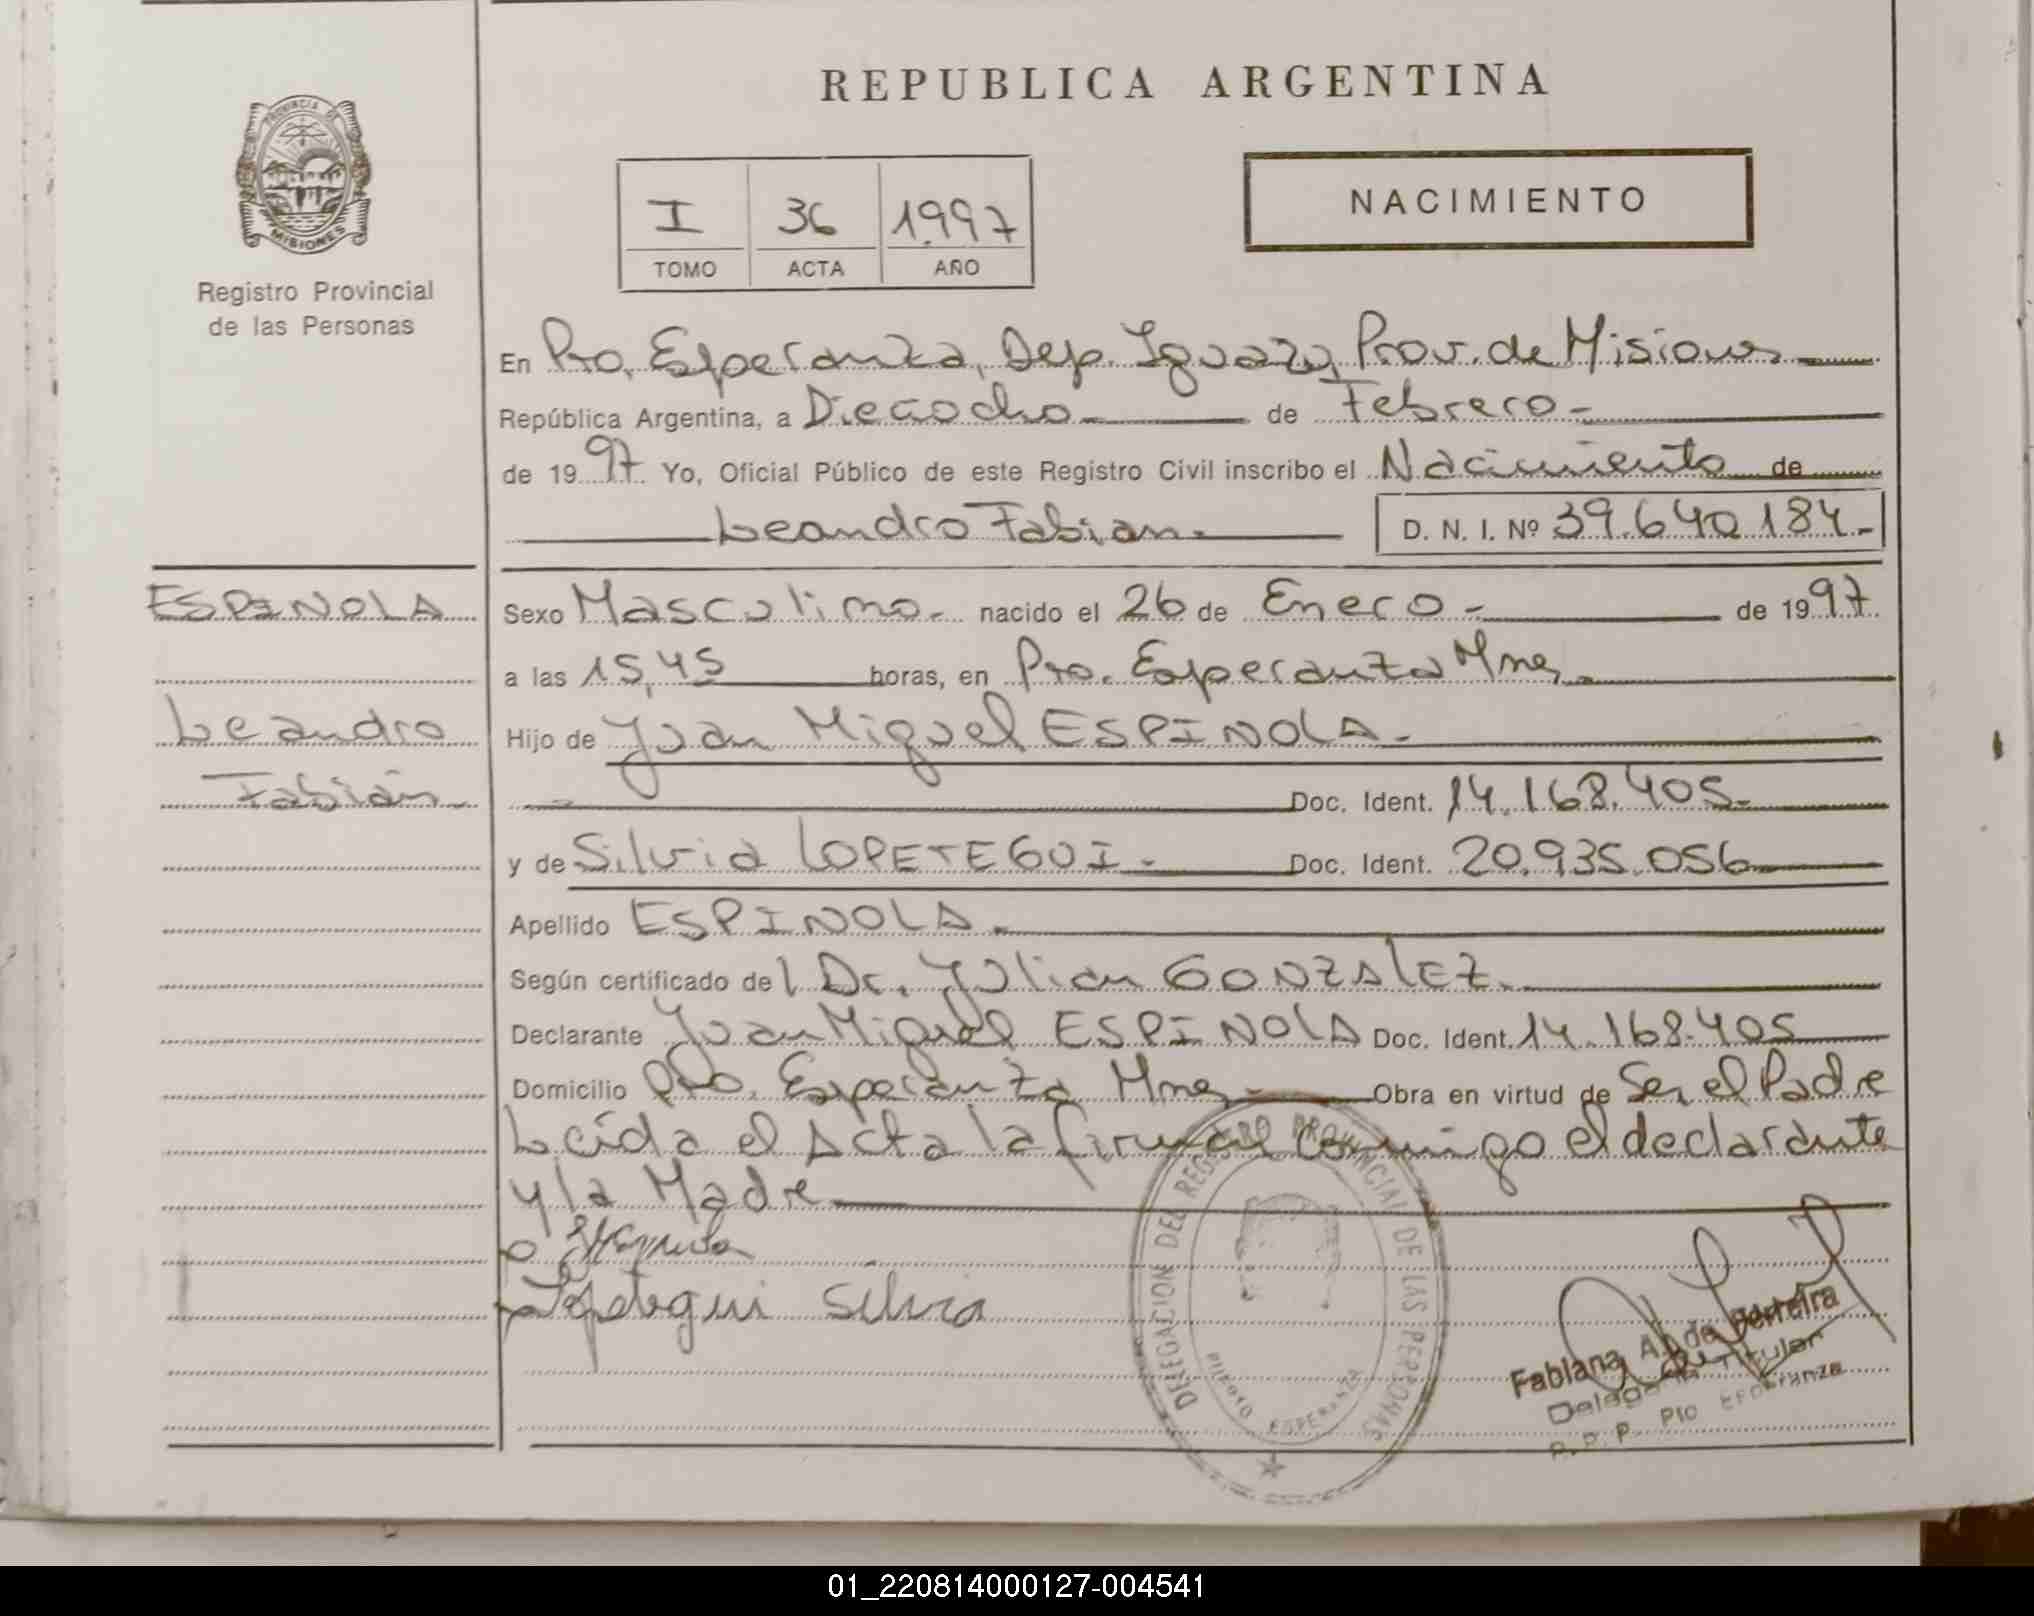 REPUBLICA ARGENTINA
PROVINCIA DE
MISIONES
Registro Provincial
de las Personas
I 36 1.997
TOMO ACTA AÑO
NACIMIENTO
En Pto. Esperanza, Dep. Iguazu, Prov. de Misiones
República Argentina, a Dieciocho de Febrero
de 1997 Yo, Oficial Público de este Registro Civil inscribo el Nacimiento de
Leandro Fabian D. N. I. Nº 39.640.184.-
ESPINOLA
Leandro
Fabián
Sexo Masculino nacido el 26 de Enero de 1997
a las 15,45 horas, en Pto. Esperanza Mnes
Hijo de Juan Miguel ESPINOLA
Doc. Ident. 14.168.405.
y de Silvia LOPETEGUI Doc. Ident. 20.935.056
Apellido ESPINOLA
Según certificado del Dr. Julian GONZALEZ
Declarante Juan Miguel ESPINOLA Doc. Ident. 14.168.405
Domicilio Pto. Esperanza Mnes Obra en virtud de Ser el Padre
Leida el Acta la firman conmigo el declarante
y la Madre
Lopetegui Silvia
DELEGACION DEL REGISTRO PROVINCIAL DE LAS PERSONAS
PUERTO ESPERANZA
Fabiana A. de Ferreira
Delegada Titular
R. P. P. Pto Esperanza
01_220814000127-004541